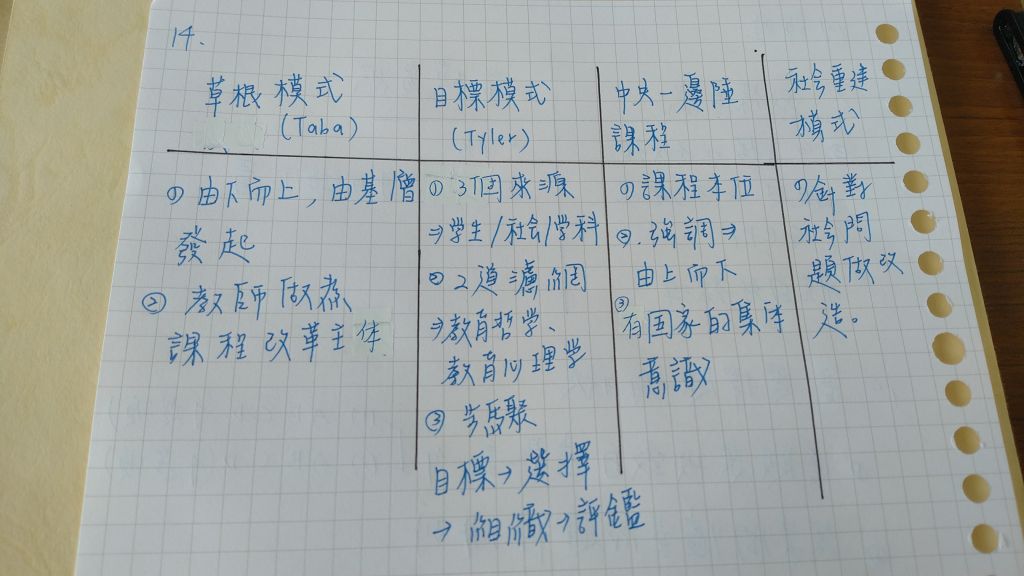 14.
草根模式
(Taba)
① 由下而上，由基層
發起
② 教師做為
課程改革主体
目標模式
(Tyler)
① 3個來源
⇒学生/社会/学科
② 2道濾網
⇒教育哲学、
教育心理学
③ 步驟
目標→選擇
→組織→評鑑
中央－邊陲
課程
①課程本位
②.強調⇒
由上而下
③
有国家的集体
意識
社会重建
模式
①針對
社会問
題做改
造。